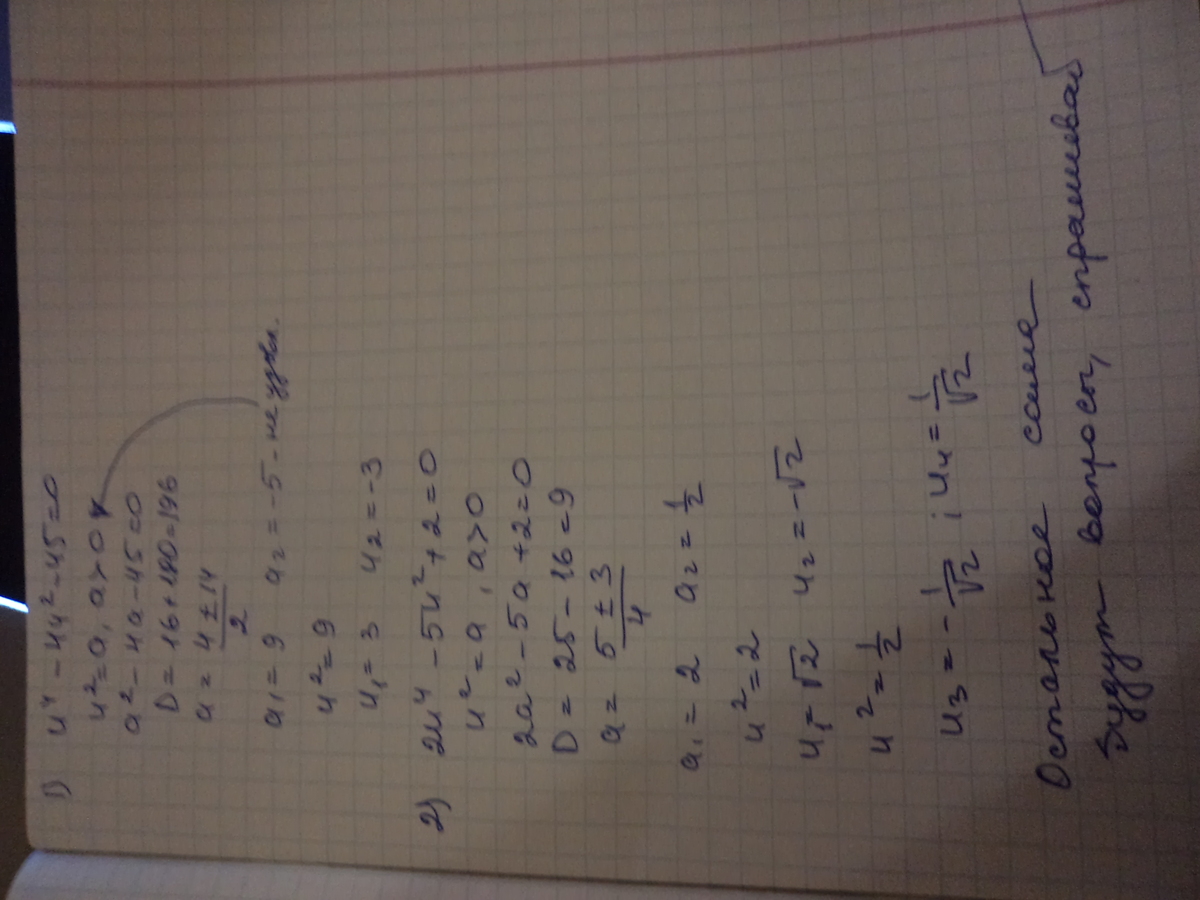 1) u⁴ - 4u² - 45 = 0
u² = a, a > 0
a² - 4a - 45 = 0
D = 16 + 180 = 196
a = (4 ± 14)/2
a₁ = 9 a₂ = -5 - не удовл.
u² = 9
u₁ = 3 u₂ = -3
2) 2u⁴ - 5u² + 2 = 0
u² = a, a > 0
2a² - 5a + 2 = 0
D = 25 - 16 = 9
a = (5 ± 3)/4
a₁ = 2 a₂ = 1/2
u² = 2
u₁ = √2 u₂ = -√2
u² = 1/2
u₃ = - 1/√2 ; u₄ = 1/√2
Остальное сама
Будут вопросы, спрашивай